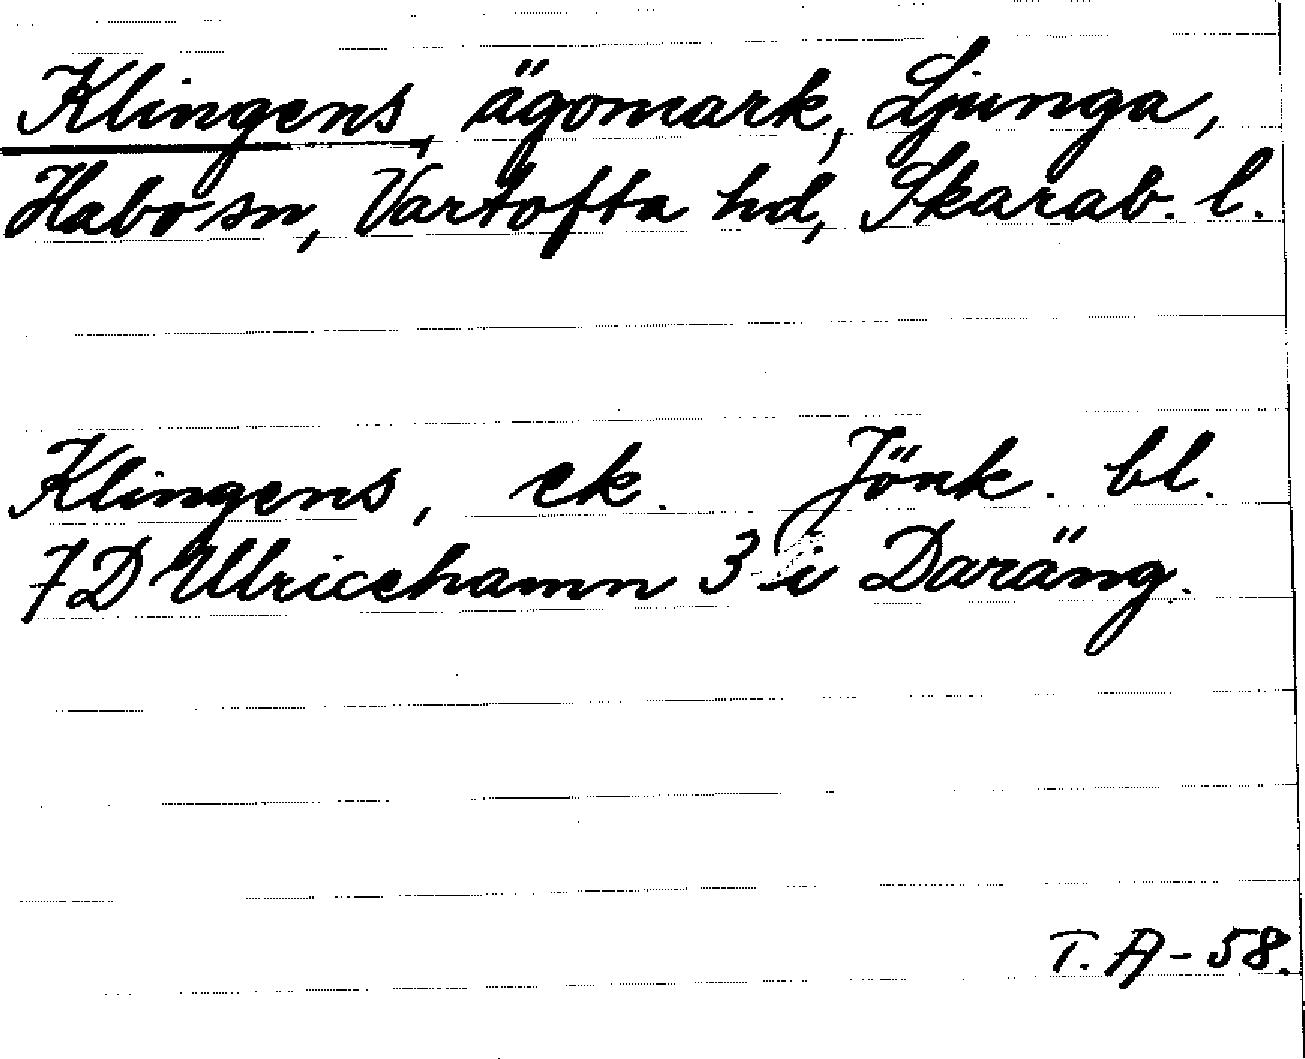 Klingens, ägomark, Ljunga,
Habo sn, Vartofta hd, Skarab. l.
Klingens, ek. Jönk. bl.
7D Ulricehamn 3 i Daräng.
T. A - 58.